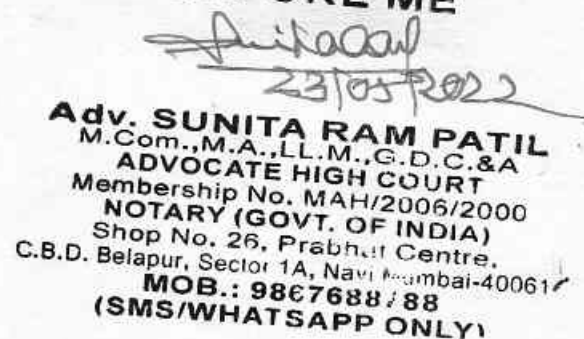 ME
23/05/2022
Adv. SUNITA RAM PATIL
M.Com.,M.A.,LL.M.,G.D.C.&A
ADVOCATE HIGH COURT
Membership No. MAH/2006/2000
NOTARY (GOVT. OF INDIA)
Shop No. 26, Prabhat Centre,
C.B.D. Belapur, Sector 1A, Navi Mumbai-400614
MOB.:
(SMS/WHATSAPP ONLY)